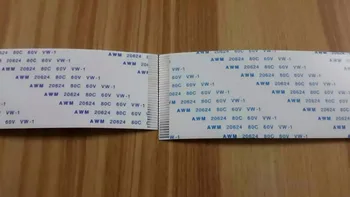 AWM 20624 80C 60V VW-1
20624 80C 60V VW-1
AWM 20624 80C 60V VW-1
AWM 20624 80C 60V VW-1
AWM 20624 80C 60V VW-1
AWM 20624 80C 60V VW-1
VW-1 AWM 20624 80C 60V
60V VW-1 AWM 20624 80C
60V VW-1
AWM 20624 80C 60V VW-1
AWM 20624 80C 60V VW-1
AWM 20624 80C 60V
AWM 20624 80C
60V VW-1 AWM 20624 80C
80C 60V VW-1 AWM 20624
20624 80C 60V VW-1 AWM
AWM 20624 80C 60V VW-1
AWM 20624 80C 60V VW-1